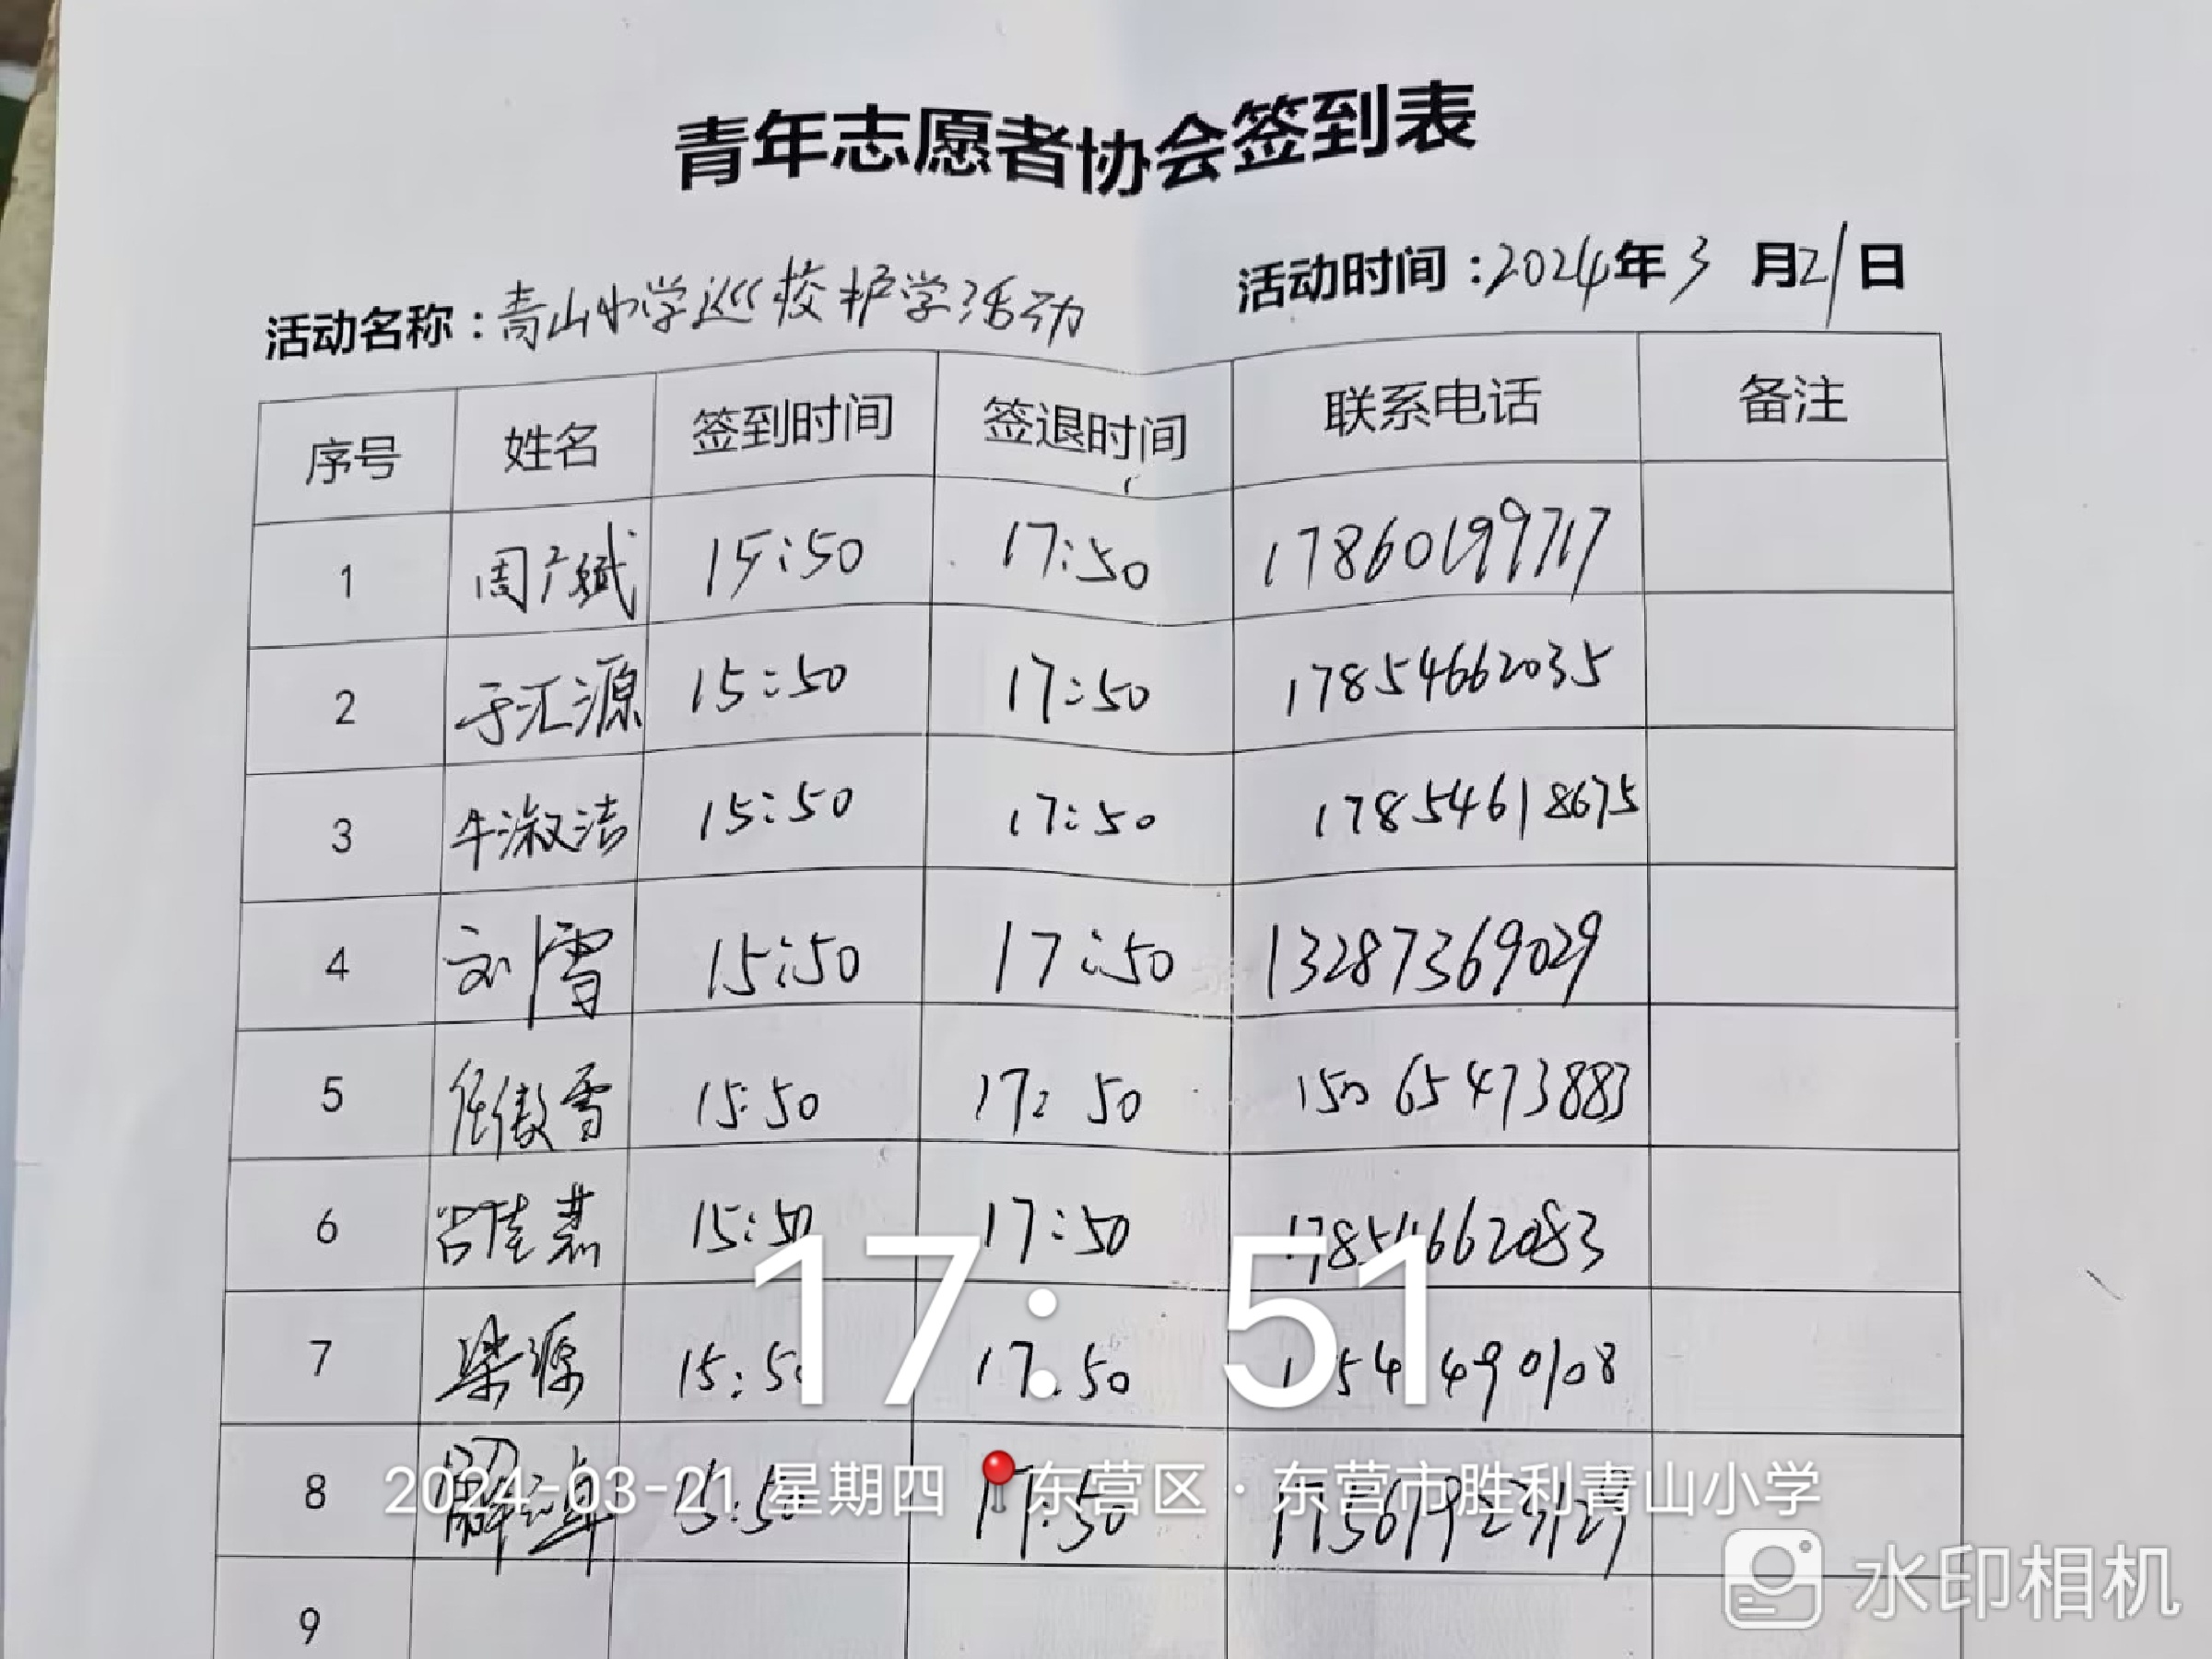 青年志愿者协会签到表
活动名称：青山小学巡校护学活动 活动时间：2024年3月21日
序号 姓名 签到时间 签退时间 联系电话 备注
1 周广斌 15:50 17:50 17860199717
2 于汇源 15:50 17:50 17854662035
3 牛淑洁 15:50 17:50 17854618675
4 刘雪 15:50 17:50 13287369029
5 任傲雪 15:50 17:50 15065473883
6 吕佳慧 15:50 17:50 17854662083
17:51
7 梁源 15:50 17:50
8 15:50 17:50
2024-03-21 星期四 东营区·东营市胜利青山小学
水印相机
9